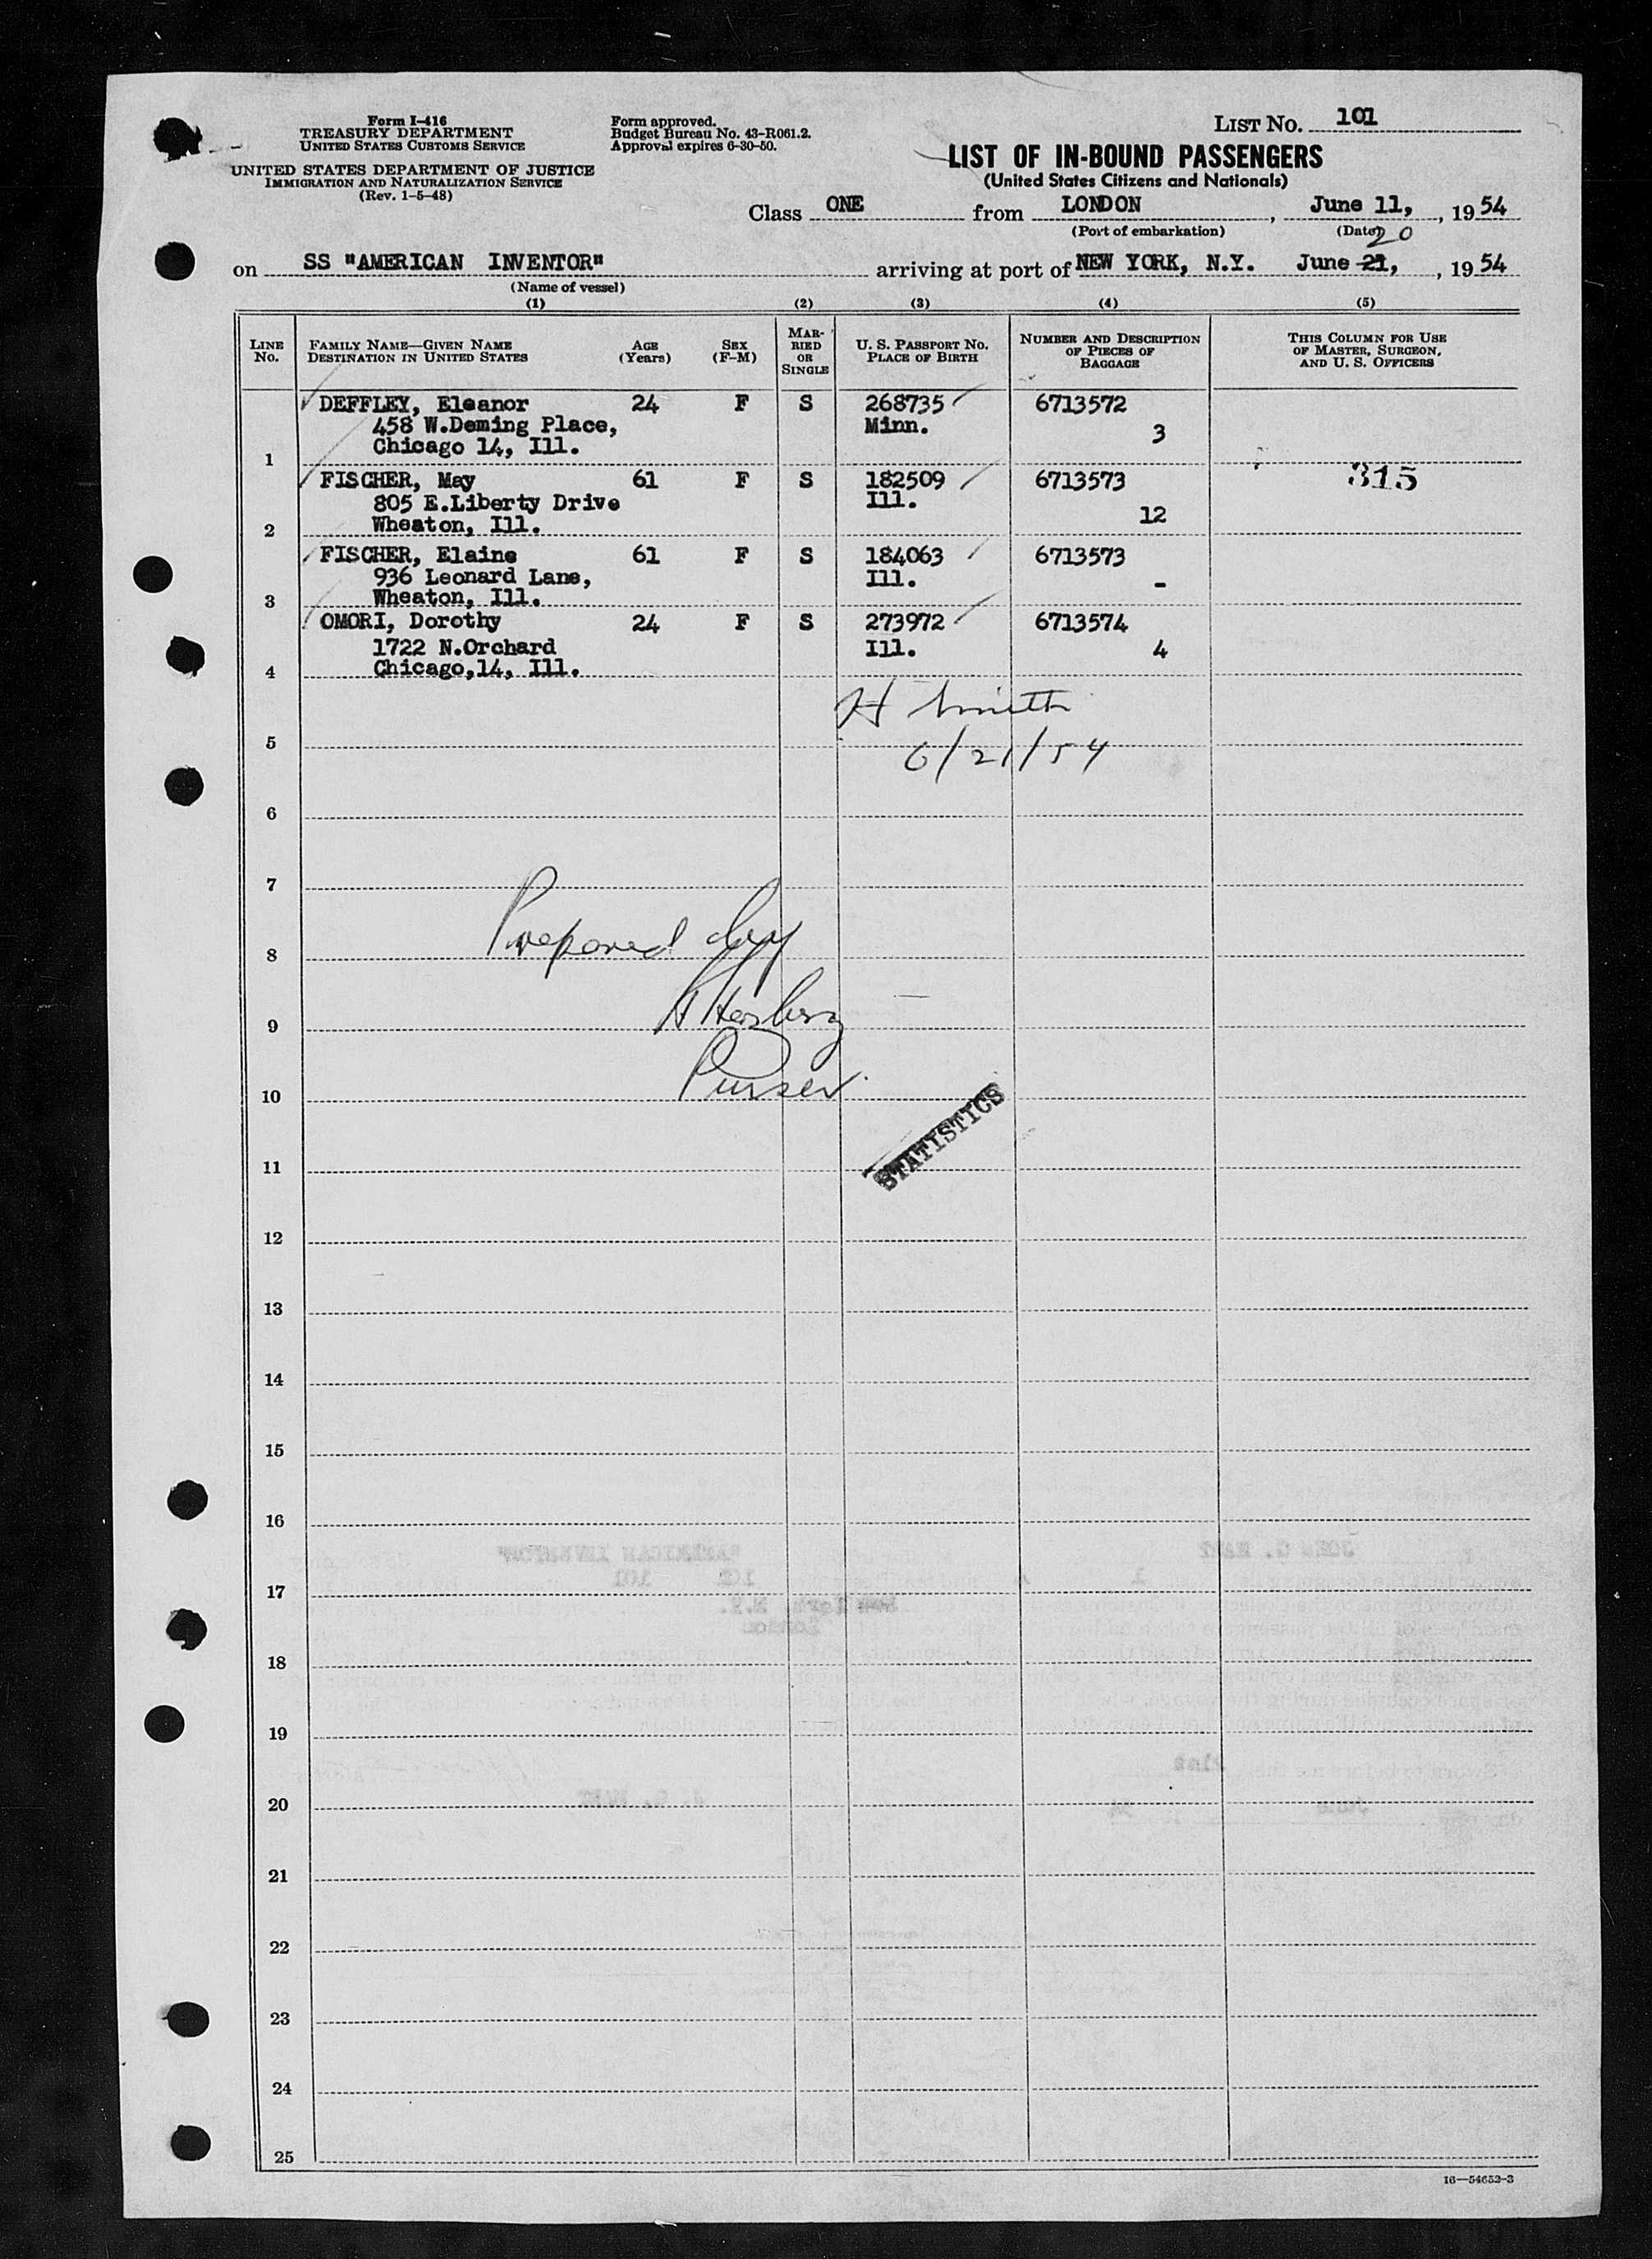 Form I-416
TREASURY DEPARTMENT
UNITED STATES CUSTOMS SERVICE
UNITED STATES DEPARTMENT OF JUSTICE
IMMIGRATION AND NATURALIZATION SERVICE
(Rev. 1-5-48)
Form approved.
Budget Bureau No. 43-R061.2.
Approval expires 6-30-50.
LIST NO. 101
LIST OF IN-BOUND PASSENGERS
(United States Citizens and Nationals)
Class ONE from LONDON, June 11, , 1954
(Port of embarkation) (Date)
20
on SS "AMERICAN INVENTOR" arriving at port of NEW YORK, N.Y. June 21, , 1954
(Name of vessel)
(1) (2) (3) (4) (5)
LINE No. FAMILY NAME—GIVEN NAME DESTINATION IN UNITED STATES AGE (Years) SEX (F-M) MARRIED OR SINGLE U. S. PASSPORT NO. PLACE OF BIRTH NUMBER AND DESCRIPTION OF PIECES OF BAGGAGE THIS COLUMN FOR USE OF MASTER, SURGEON, AND U. S. OFFICERS
DEFFLEY, Eleanor 24 F S 268735 6713572
458 W.Deming Place, Minn. 3
Chicago 14, Ill.
1
FISCHER, May 61 F S 182509 6713573 315
805 E.Liberty Drive Ill.
Wheaton, Ill. 12
2
FISCHER, Elaine 61 F S 184063 6713573
936 Leonard Lane, Ill. -
Wheaton, Ill.
3
OMORI, Dorothy 24 F S 273972 6713574
1722 N.Orchard Ill. 4
Chicago,14, Ill.
4
H Smith
5
6/21/54
6
7
Prepared by
8
9
Purser.
10
STATISTICS
11
12
13
14
15
16
17
18
19
20
21
22
23
24
25
16—54652-3